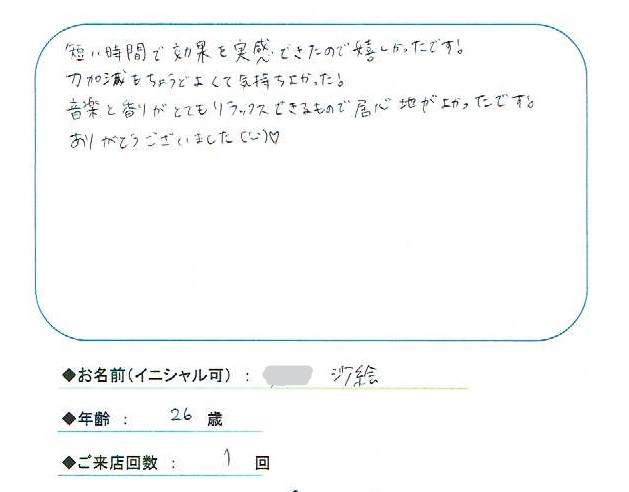 短い時間で効果を実感できたので嬉しかったです!
力加減もちょうどよくて気持ちよかった!
音楽と香りがとてもリラックスできるもので居心地がよかったです!
ありがとうございました(^^)♡
◆お名前(イニシャル可) : 沙絵
◆年齢 : 26 歳
◆ご来店回数 : 1 回